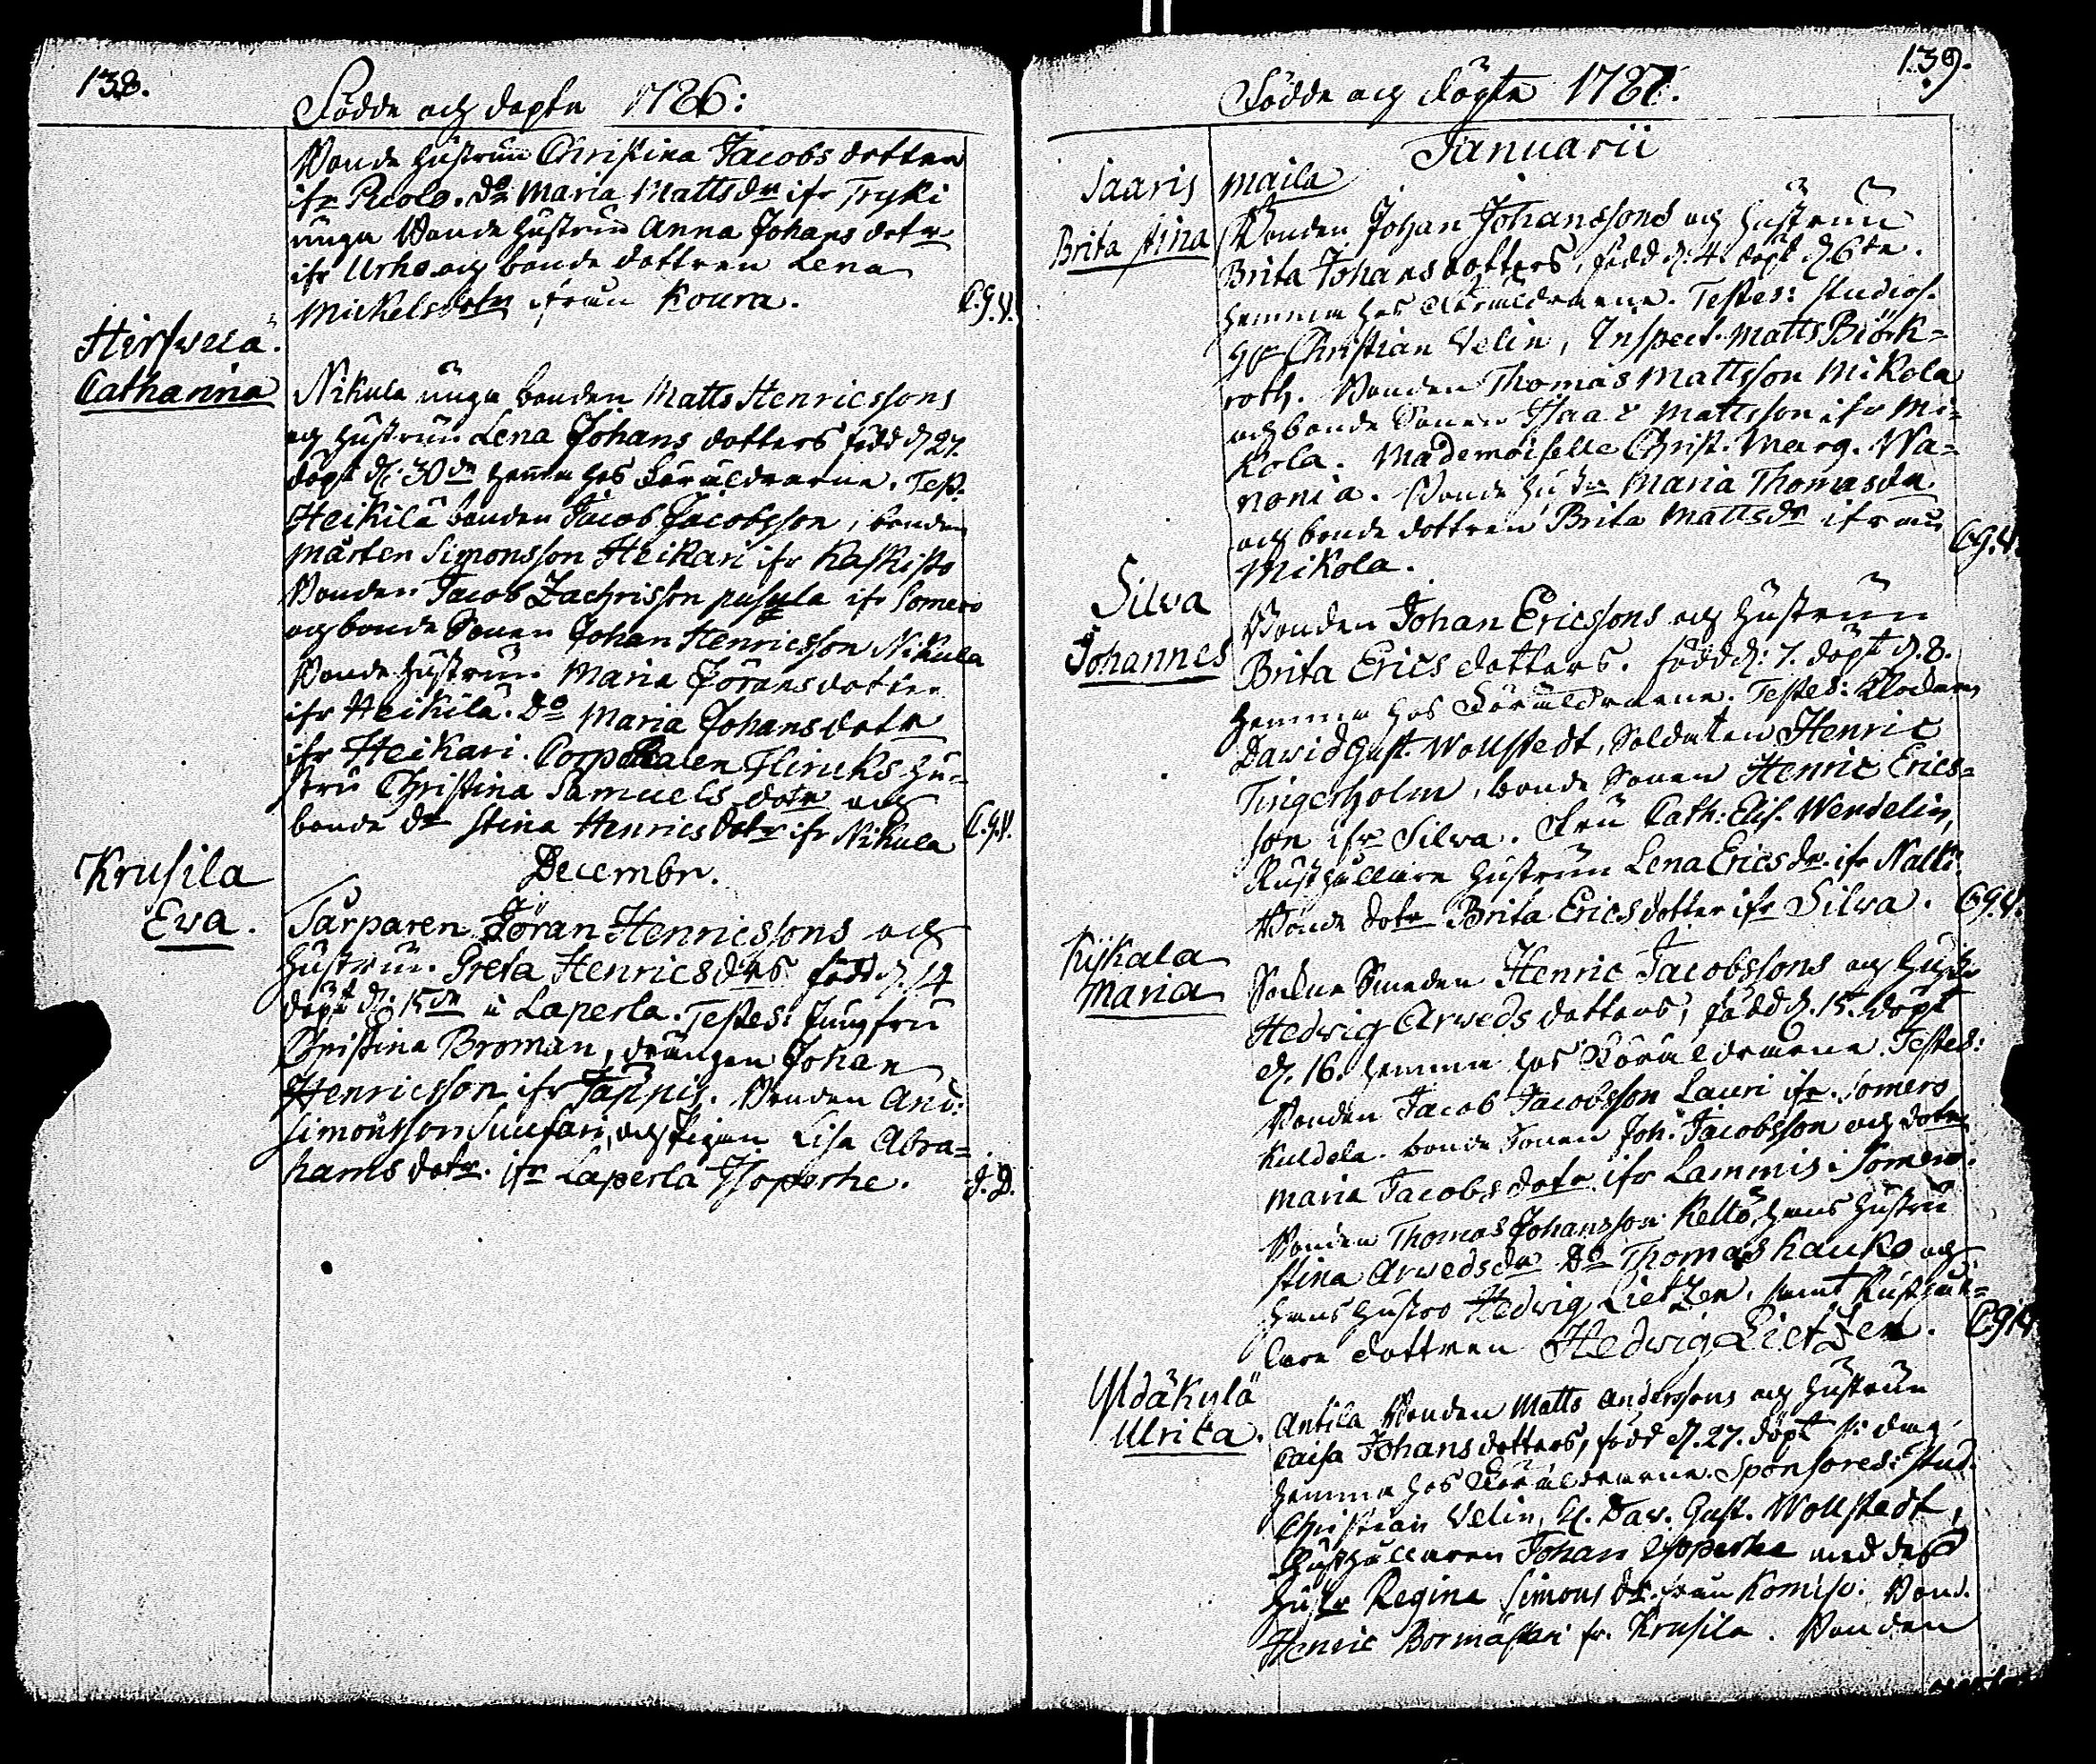 138.
Födde och döpte 1786:
Bonde hustrun Christina Jacobs dotter
ifr Picolo. Do Maria Mattsdr ifr Tryki
unga Bonde hustrun Anna Johans dotr
ifr Urho och bonde dottren Lena
Mickelsdotr ifrån Koura. C.G.V.
Hirswela
Catharina
Nikula unga bonden Matts Henricssons
och hustrun Lena Johans dotters född d. 27.
döpt d. 30de hemma hos Föräldrarne. Test.
Heikilä bonden Jacob Jacobsson, bonden
Mårten Simonsson Heikari ifr Kaskisto
Bonden Jacob Zachrisson pusula ifr Somero
och bonde Sonen Johan Henricsson Nikula
Bonde hustrun Maria Jöransdotter
ifr Heikilä. Do Maria Johansdotr
ifr Heikari. Corporalen Flincks hu-
stru Christina Samuels dotr och
bonde dr Stina Henricsdotr ifr Nikula C.G.V.
Decembr.
Krusila
Eva.
Tårparen Jöran Henricssons och
hustrun Greta Henricsdrs född d. 14
döpt d. 15de i Laperla. Testes: Jungfru
Christina Broman, drängen Johan
Henricsson ifr Tappis. Bonden And:
Simonsson Suutari, och pigan Lisa Abra-
hams dotr. ifr Laperla Isoperhe. J.D.
139.
Födde och döpte 1787.
Januarii
Saaris
Brita Stina
Maila
Bonden Johan Johanssons och hustrun
Brita Johansdotters, född d. 4. döpt d. 6te.
hemma hos Föräldrarne. Testes: Studios.
Hr Christian Velin, Inspect. Matts Biörk-
roth. Bonden Thomas Mattsson Mikola
och bonde Sonen Isaac Mattsson ifr Mi-
kola. Mademoiselle Christ. Marg. Wa-
nonia. Bonde hu Maria Thomasdr.
och bonde dottren Brita Mattsdr ifrån
Mikola. C.G.V.
Silva
Johannes
Bonden Johan Ericssons och hustrun
Brita Erics dotters. född d: 7. döpt d. 8.
hemma hos Föräldrarne. Testes: Klockaren
David Gust. Wollstedt, Soldaten Henric
Tingerholm, bonde Sonen Henric Erics-
son ifr Silva. Fru Cath: Elis. Wendelin,
Rusthållare hustrun Lena Ericsdr. ifr Nalli.
Bonde dotr Brita Ericsdotter ifr Silva. C.G.V.
Kiskala
Maria
Sockne Smeden Henric Jacobssons och hustr.
Hedwig Arweds dotters, född d. 15. döpt
d. 16. hemma hos Föräldrarne. Testes:
Bonden Jacob Jacobsson Lauri ifr. Somero
Kuldela. bonde Sonen Joh: Jacobsson och dotr
Maria Jacobs dotr ifr Lammis i Somero.
Bonden Thomas Johansson Keltö, hans hustru
Stina Arwedsdr Do Thomas Kauko och
hans hustro Hedwig Lietzen, samt Rusthål-
lare dottren Hedwig Lietzen. C.G.V.
Yldäkylä
Ulrica.
Antila Bonden Matts Anderssons och hustrun
Caisa Johansdotters, född d. 27. döpt s. dag
hemma hos Föräldrarne. Sponsores: Stud.
Christian Velin, Kl. Dav. Gust. Wollstedt,
Rusthållaren Johan Isoperhe med dess
hustr Regina Simons dr. från Komiso. Bond.
Henric Bormästari fr. Krusila. Bonden